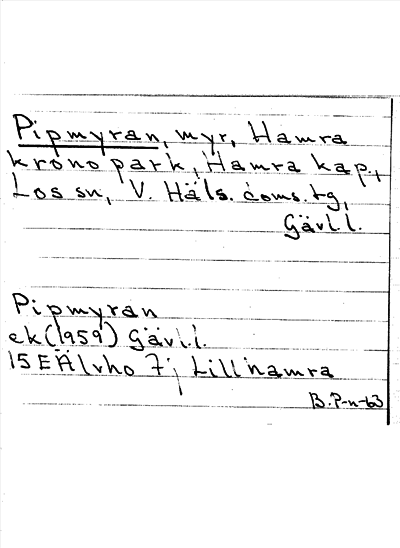 Pipmyran, myr, Hamra
kronopark, Hamra kap.,
Los sn, V. Häls. doms.tg,
Gävl.l.
Pipmyran
ek (1959) Gävl.l.
15E Älvho 7j Lillhamra
B. P-n-63